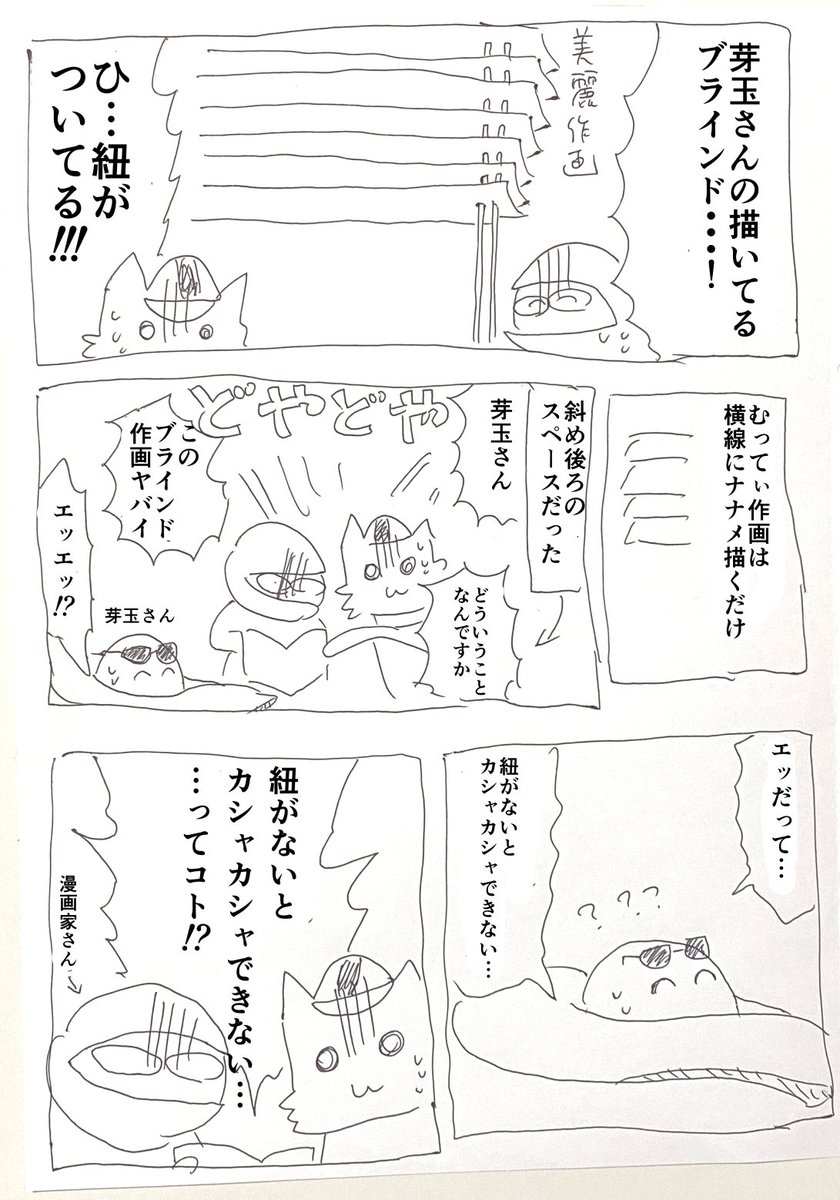 芽玉さんの描いてる
ブラインド・・・！
美麗作画
ひ…紐が
ついてる!!!
むってぃ作画は
横線にナナメ描くだけ
斜め後ろの
スペースだった
芽玉さん
どやどや
この
ブラインド
作画ヤバイ
どういうこと
なんですか
芽玉さん
エッエッ!?
エッだって…
紐がないと
カシャカシャできない…
？？？
紐がないと
カシャカシャできない…
…ってコト!?
漫画家さん